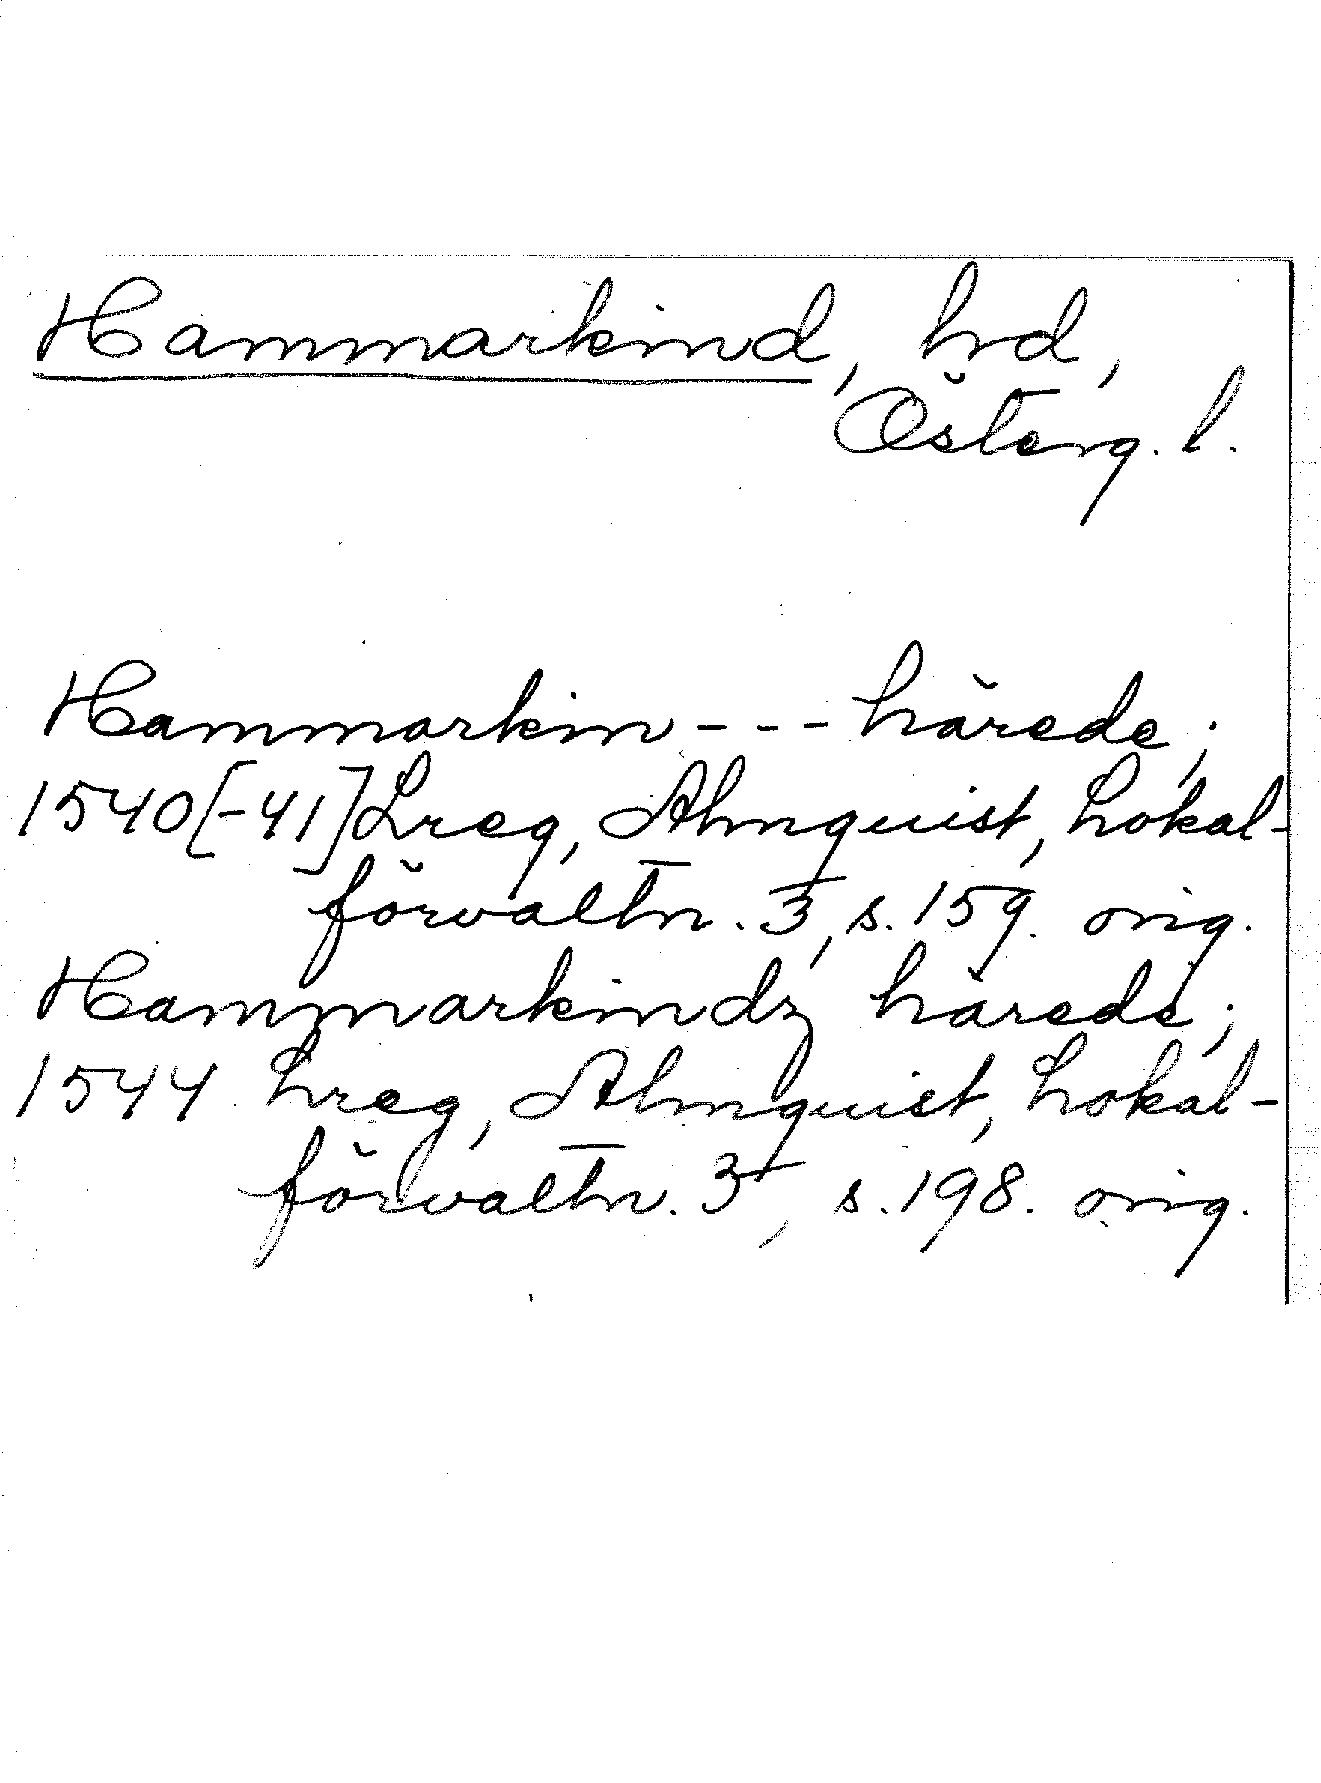 Hammarkind, hd,
Österg. l.
Hammarkin - - - härede;
1540[-41] Lreg, Almquist, Lokal-
förvaltn. 3, s. 159. orig.
Hammarkindz härede;
1544 Lreg, Almquist, Lokal-
förvaltn. 3, s. 198. orig.